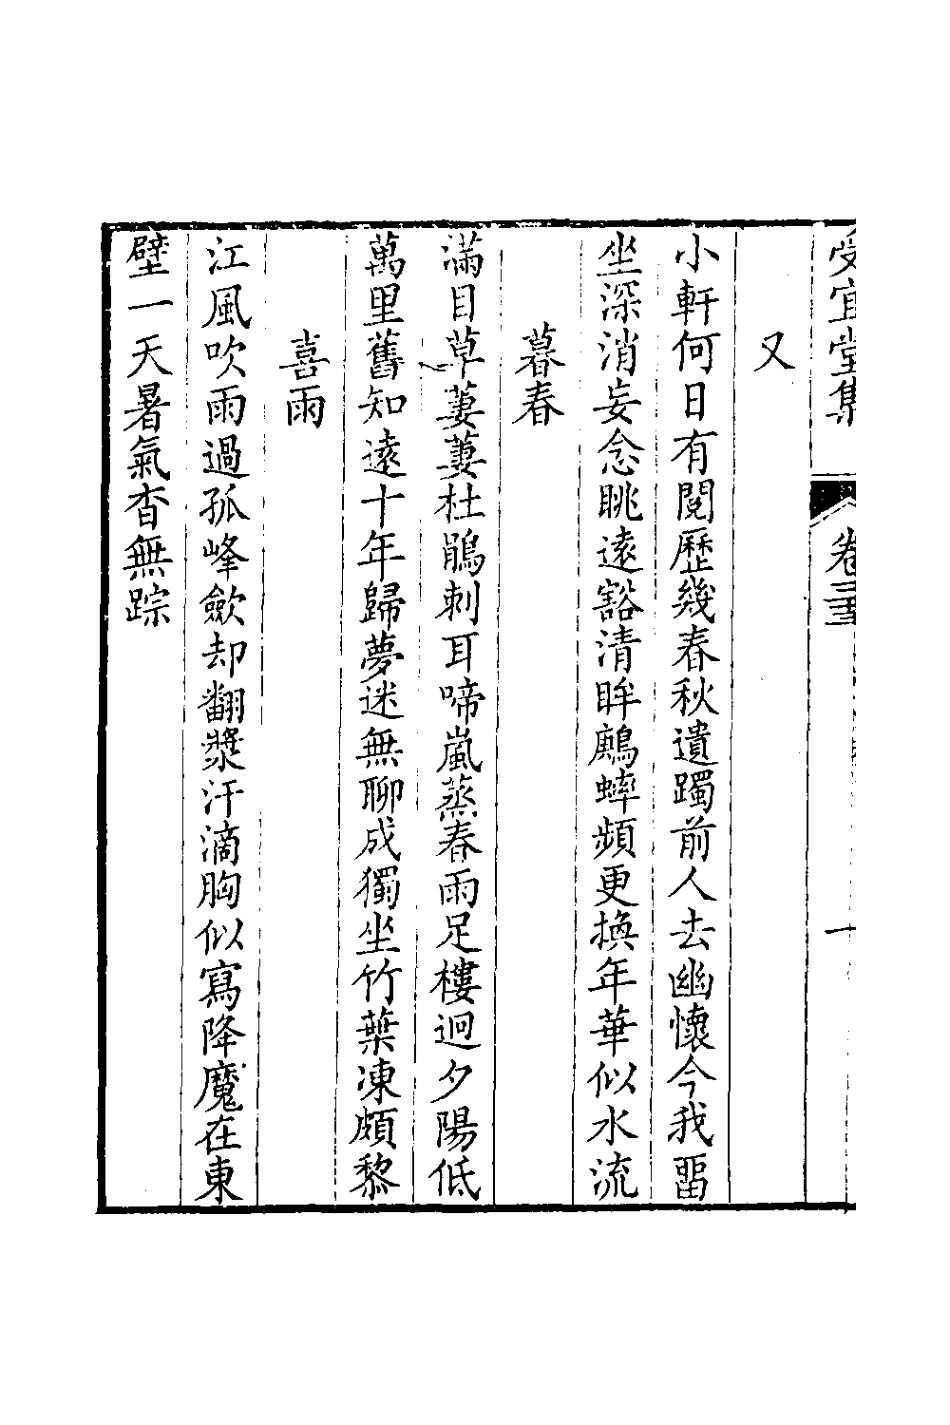 受宜堂集 卷 十
又
小軒何日有閱歷幾春秋遺躅前人去幽懷今我畱
坐深消妄念眺遠豁清眸鷓蟀頻更換年華似水流
暮春
滿目草萋萋杜鵑刺耳啼嵐蒸春雨足樓迥夕陽低
萬里舊知遠十年歸夢迷無聊成獨坐竹葉凍頗黎
喜雨
江風吹雨過孤峰歛却翻漿汗滴胸似寫降魔在東
壁一天暑氣杳無踪